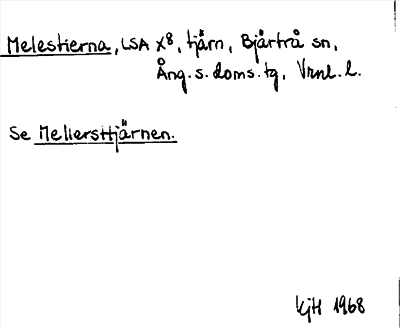 Melestierna, LSA X8, tjärn, Bjärtrå sn,
Ång. s. doms. tg, Vrnl. l.
Se Mellersttjärnen.
KjH 1968